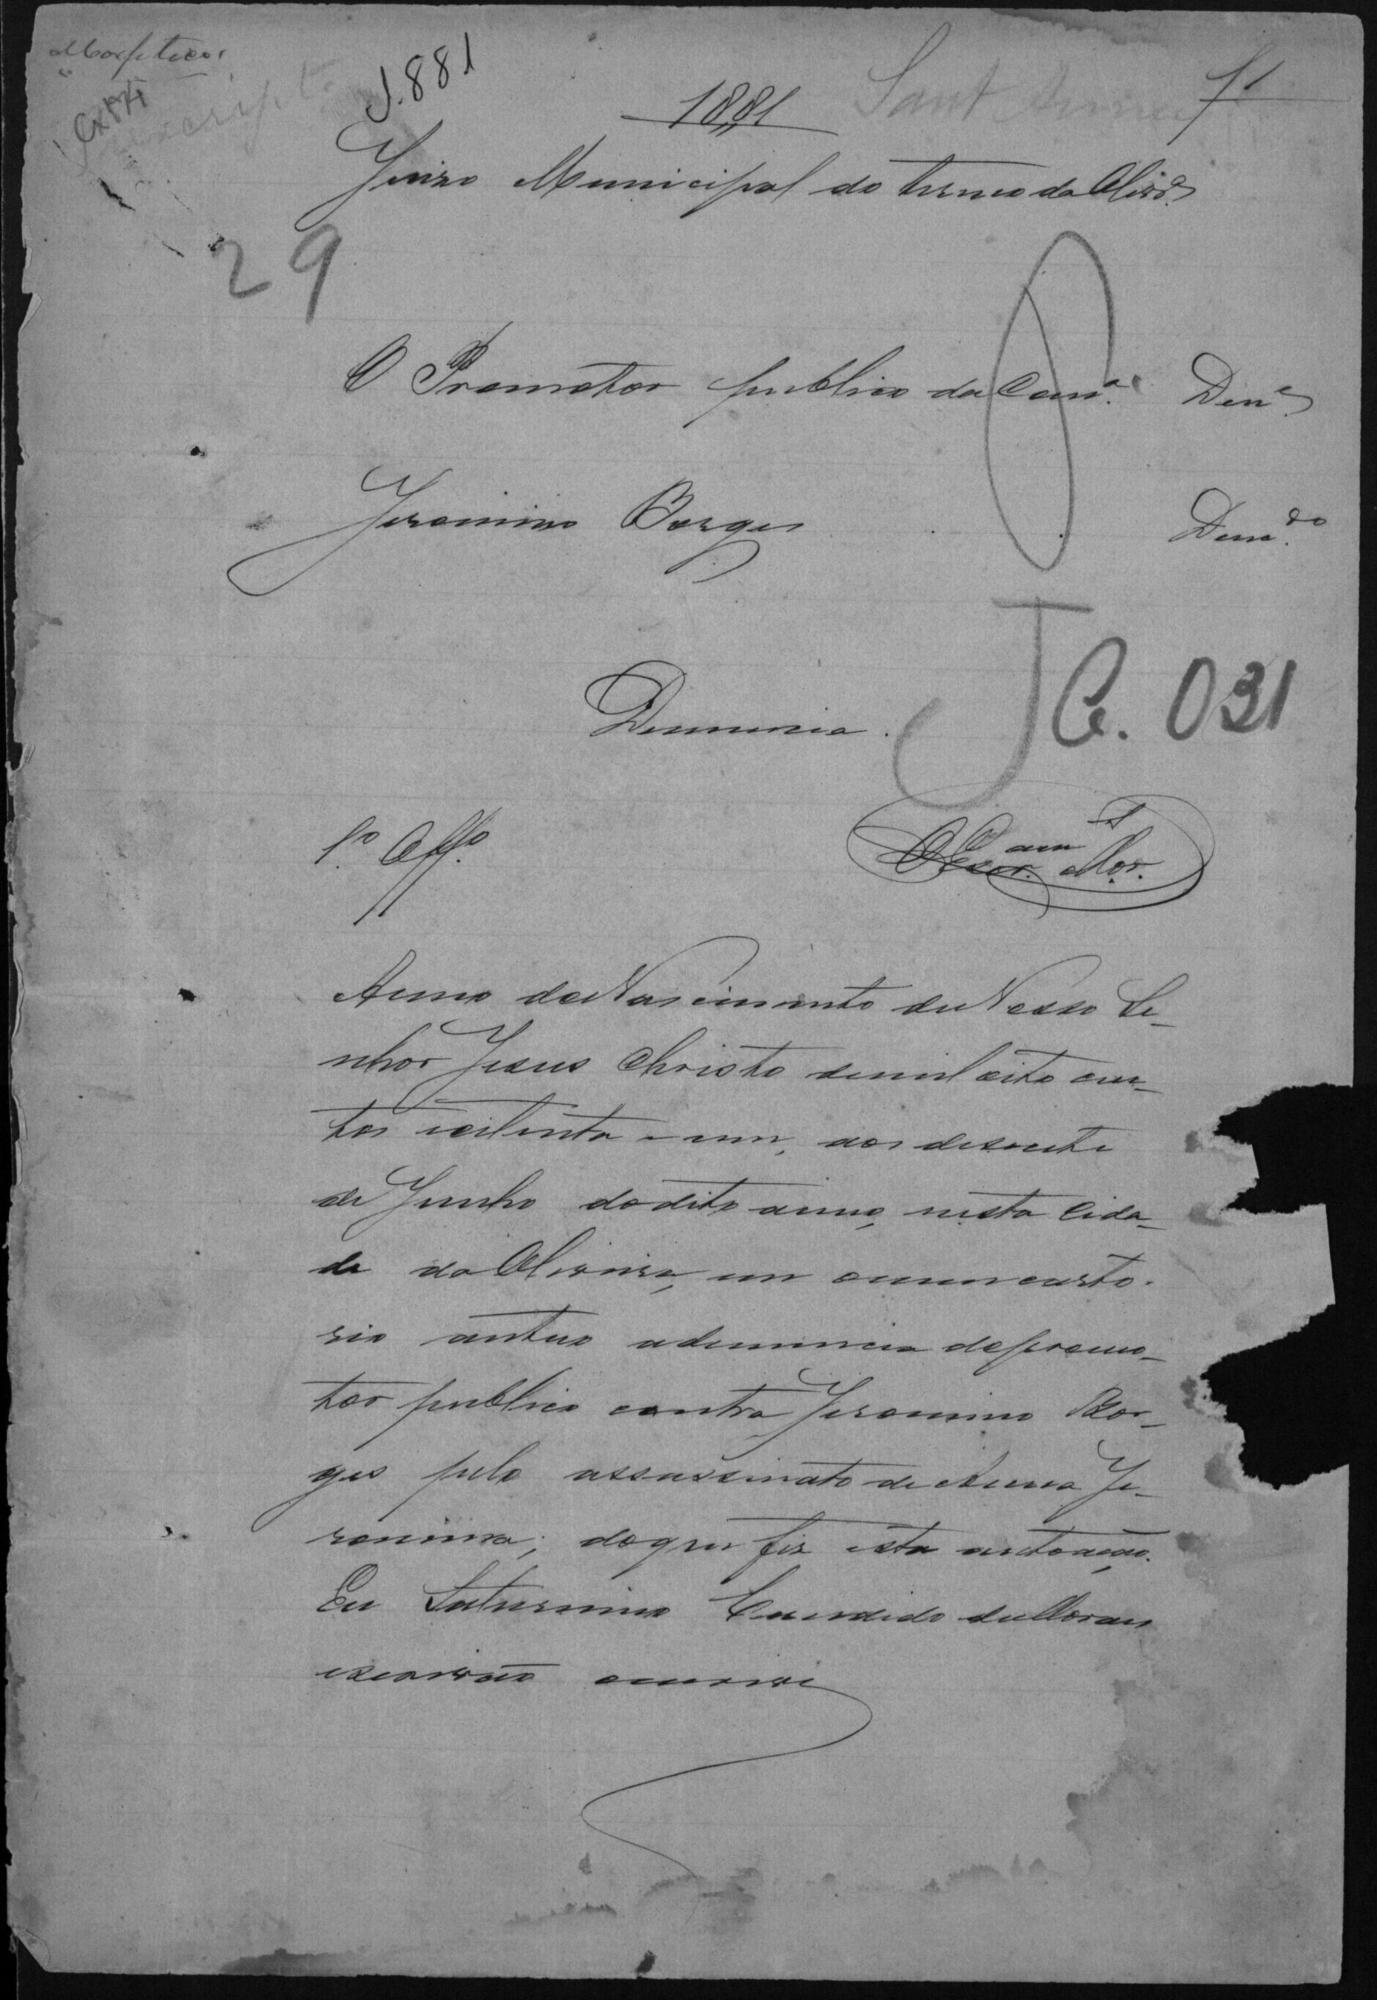 Morfeticos
Cx 574
J.881
1881
Sant Anna
f 1
Juizo Municipal do termo da Olivrª
29
O Promotor publico da Comª. Denᵉ
Jeronimo Borges Denᵈᵒ
Denuncia.
JC. 031
1º. Offº.
O Escr. Mor.
Anno do Nascimento de Nosso Se-
nhor Jesus Christo de mil oito cen-
tos e oitenta e um, aos desesete
de Junho do dito anno, nesta Cida-
de da Oliveira, em o meu carto-
rio autuo a denuncia do promo-
tor publico contra Jeronimo Bor-
ges pelo assassinato de Anna Je-
ronima; do que fiz esta autoação.
Eu Saturnino Candido de Moraes
escrivão o escrevi